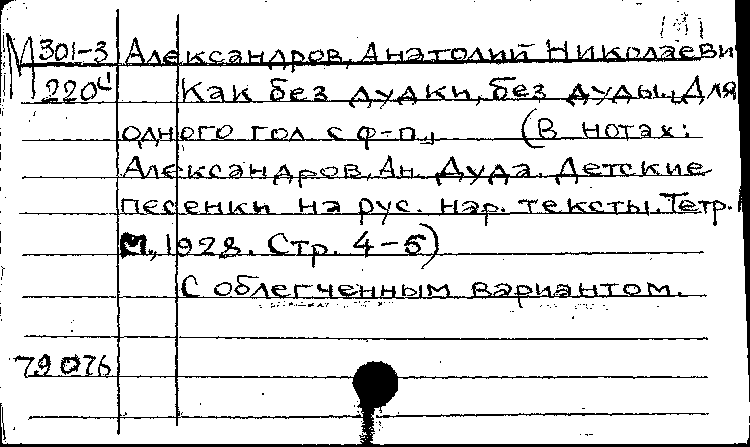 М 301-3 Александров, Анатолий Николаеви
220 Как без дудки, без дуды. Для
одного гол. с ф-п. (В нотах:
Александров, Ан. Дуда. Детские
песенки на рус. нар. тексты. Тетр. 1
М., 1928. Стр. 4-5)
С облегченным вариантом.
79076